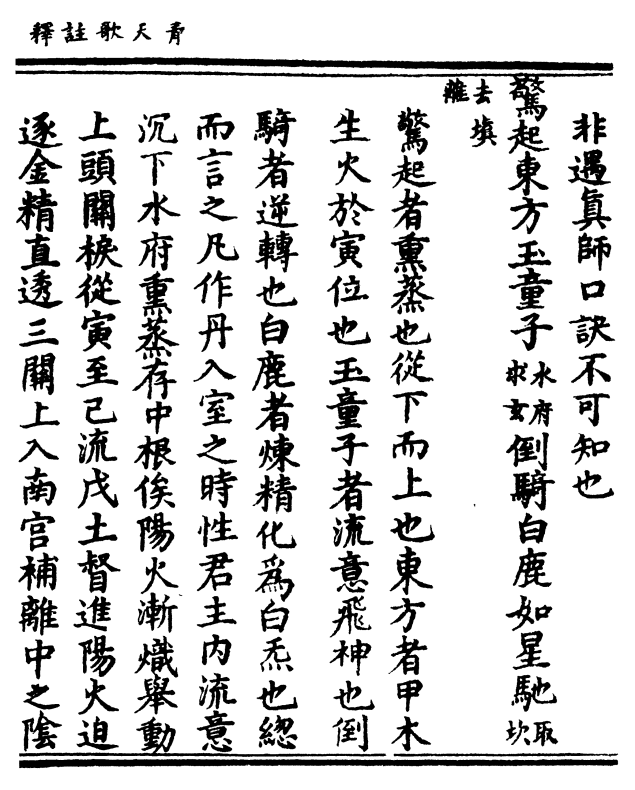 青天歌註釋
非遇真師口訣不可知也
驚起東方玉童子水府求玄倒騎白鹿如星馳取坎
去填離
驚起者熏蒸也從下而上也東方者甲木
生火於寅位也玉童子者流意飛神也倒
騎者逆轉也白鹿者煉精化為白炁也總
而言之凡作丹入室之時性君主內流意
沉下水府熏蒸存中根俟陽火漸熾舉動
上頭關捩從寅至巳流戊土督進陽火迫
逐金精直透三關上入南宮補離中之陰